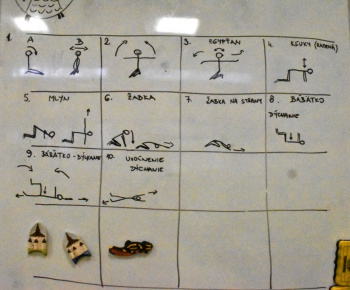 1. A B
2.
3. EGYPŤAN
4. KĽUKY (RAMENÁ)
5. MLYN
6. ŽABKA
7. ŽABKA NA STRANY
8. BÁBÄTKO
DÝCHANIE
9. BÁBÄTKO - DÝCHANIE
10. UVOĽNENIE
DÝCHANIE